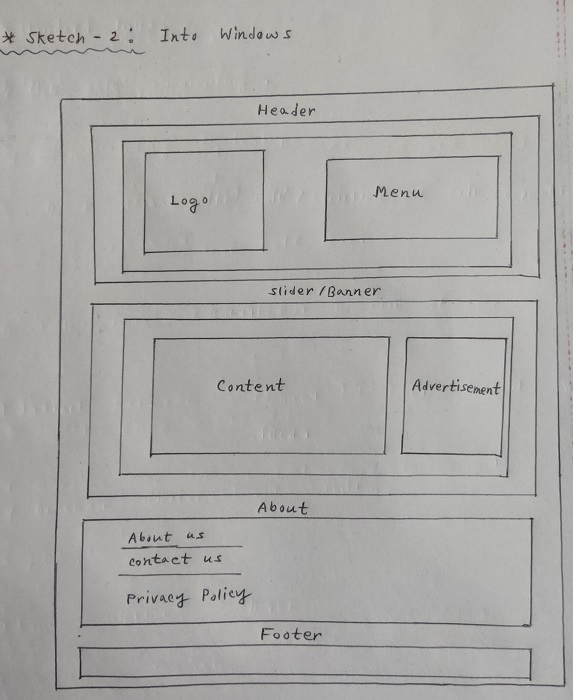 * Sketch - 2 : Into Windows
Header
Logo
Menu
Slider / Banner
Content
Advertisement
About
About us
contact us
Privacy Policy
Footer